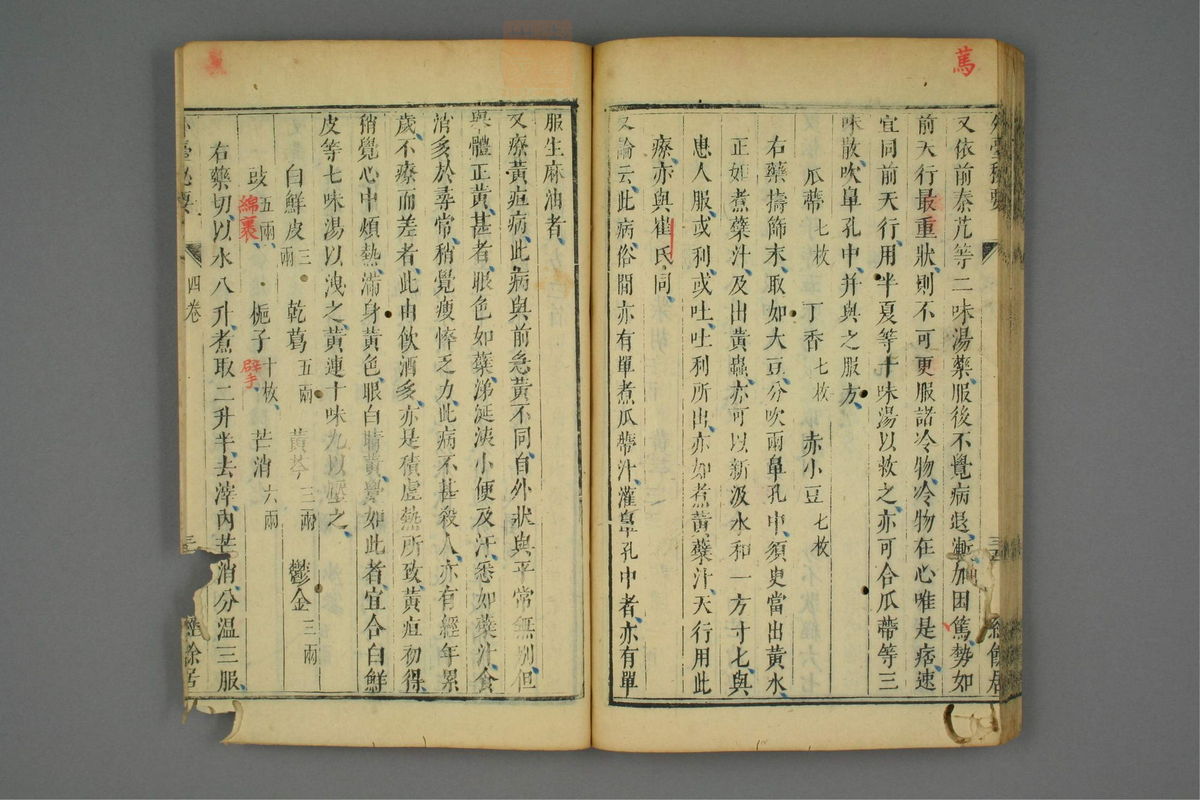 篤
外臺秘要
經餘居
又依前秦艽等二味湯藥服後不覺病退漸加困篤勢如
前天行最重狀則不可更服諸冷物冷物在心唯是痞速
宜同前天行用半夏等十味湯以救之亦可合瓜蔕等三
味散吹鼻孔中并與之服方
瓜蔕七枚 丁香七枚 赤小豆七枚
右藥擣篩末取如大豆分吹兩鼻孔中須臾當出黃水
正如煮蘗汁及出黃蟲亦可以新汲水和一方寸匕與
患人服或利或吐吐利所出亦如煮黃蘗汁天行用此
療亦與崔氏同
又論云此病俗間亦有單煮瓜蔕汁灌鼻孔中者亦有單
服生麻油者
又療黃疸病此病與前急黃不同自外狀與平常無別但
舉體正黃甚者眼色如蘗涕涎洟小便及汗悉如蘗汁食
消多於尋常稍覺瘦悴乏力此病不甚殺人亦有經年累
歲不療而差者此由飲酒多亦是積虛熱所致黃疸初得
稍覺心中煩熱滿身黃色眼白睛黃覺如此者宜合白鮮
皮等七味湯以洩之黃連十味丸以壓之
白鮮皮三兩 乾葛五兩 黃芩三兩 鬱金三兩
豉五兩綿裹 梔子十枚擘 芒消六兩
右藥切以水八升煮取二升半去滓內芒消分温三服
外臺秘要
四卷
經餘居